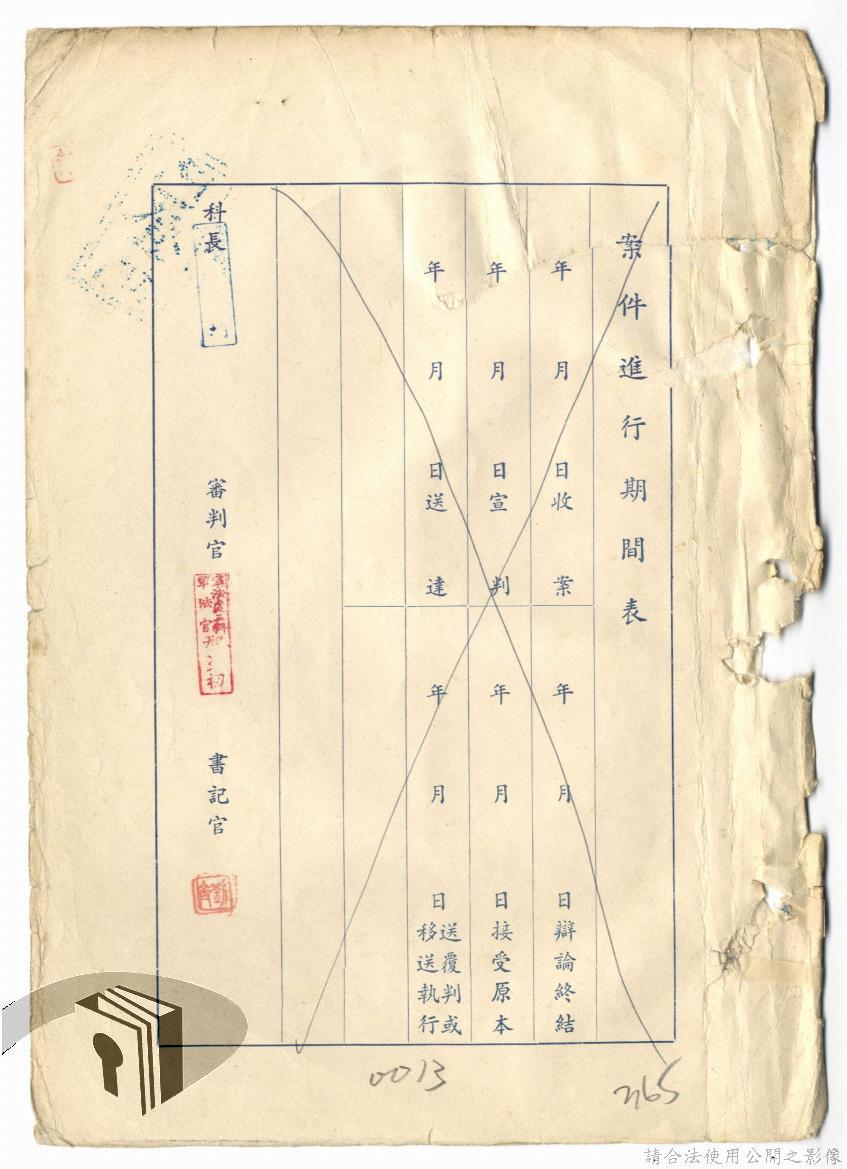 案件進行期間表
年 月 日收案
年 月 日辯論終結
年 月 日宣判
年 月 日接受原本
年 月 日送達
年 月 日送覆判或移送執行
科長
審判官
軍法官
書記官
0013
請合法使用公開之影像